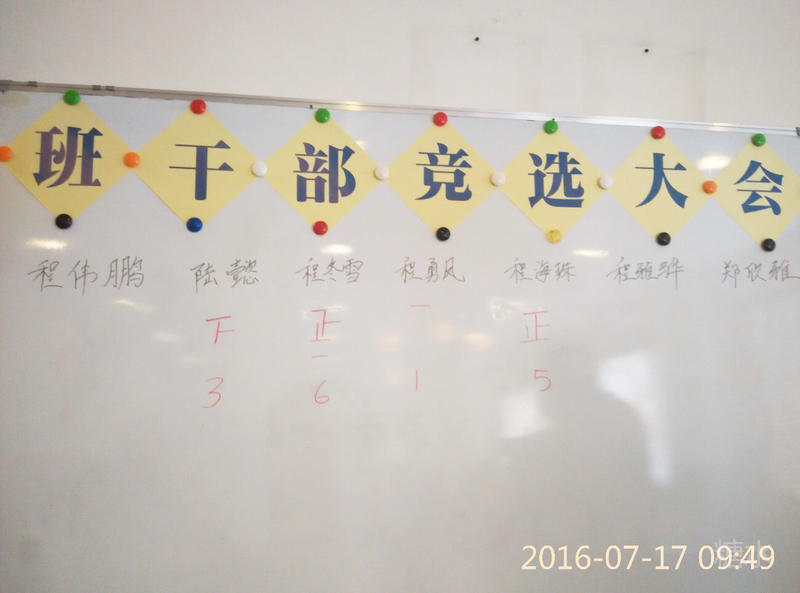 班干部竞选大会
程伟鹏 陆懿 程冬雪 程勇风 程海珠 程雅骅 郑欣雅
下 正一 一 正
3 6 1 5
糖水
2016-07-17 09:49